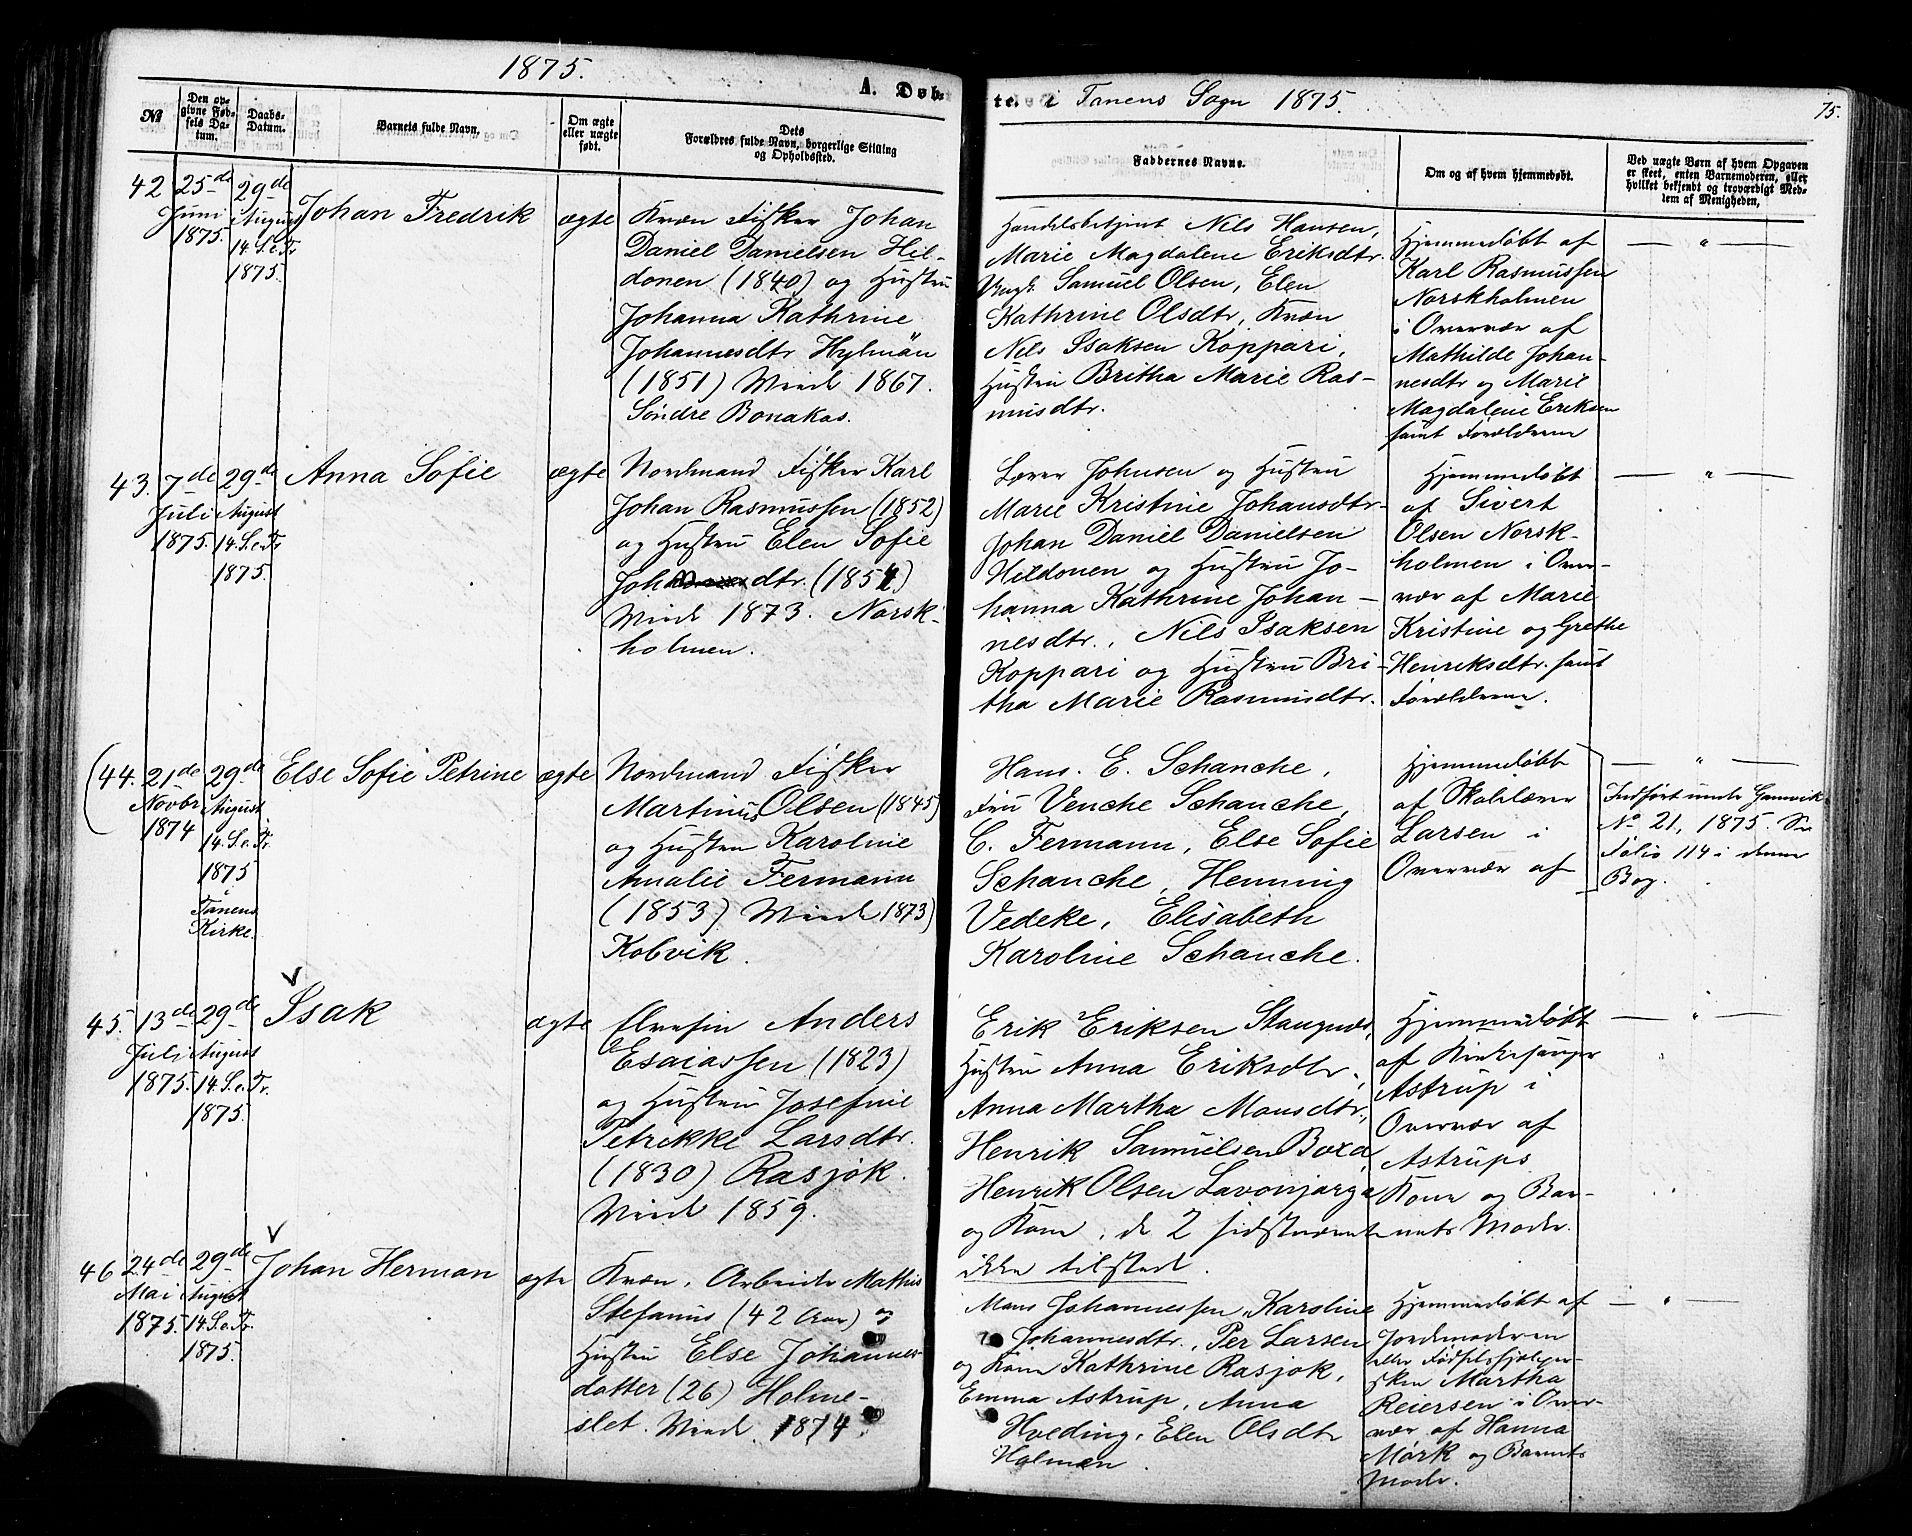 1875.
A. Døb-
te. i Tanens Sogn 1875.
75.
No
Den op-
givne Fød-
sels Da-
tum.
Daabs-
Datum.
Barnets fulde Navn.
Om ægte
eller uægte
født.
Dets
Forældres fulde Navn, borgerlige Stilling
og Opholdssted.
Faddernes Navne.
Om og af hvem hjemmedøbt.
Ved uægte Børn af hvem Opgaven
er skeet, enten Barnemoderen, eller
hvilket bekjendt og troværdigt Med-
lem af Menigheden.
42
25de
Juni
1875.
29de
August
14. S. e. Tr
1875.
Johan Fredrik
ægte
Kvæn Fisker Johan
Daniel Danielsen Hil-
donen (1840) og Hustru
Johanna Kathrine
Johannesdtr Hylmän
(1851) Viede 1867.
Søndre Bonakas.
Handelsbetjent Nils Hansen,
Marie Magdalene Eriksdtr.
Ungk. Samuel Olsen, Elen
Kathrine Olsdtr, Kvæn
Nils Isaksen Koppari,
Hustru Britha Marie Ras-
musdtr.
Hjemmedøbt af
Karl Rasmussen
Norskholmen
i Overvær af
Mathilde Johan-
nesdtr og Marie
Magdalene Eriksen
samt Forældrene
— " —
43.
7de
Juli
1875.
29de
August
14. S. e. Tr
1875.
Anna Sofie
ægte
Nordmand Fisker Karl
Johan Rasmussen (1852)
og Hustru Elen Sofie
Johansdtr. (1854)
Viede 1873. Norsk-
holmen.
Lærer Johnsen og Hustru
Marie Kristine Johansdtr-
Johan Daniel Danielsen
Hildonen og Hustru Jo-
hanna Kathrine Johan-
nesdtr., Nils Isaksen
Koppari og Hustru Bri-
tha Marie Rasmusdtr.
Hjemmedøbt
af Sivert
Olsen Norsk-
holmen i Over-
vær af Marie
Kristine og Grethe
Henriksdtr. samt
Forældrene.
— " —
(44.
21de
Novbr
1874
29de
August
14. S. e. Tr.
1875
i
Tanens
Kirke.
Else Sofie Petrine
ægte
Nordmand Fisker
Martinus Olsen (1845)
og Hustru Karoline
Amalie Fermann
(1853) Viede 1873)
Kobvik.
Hans. E. Schanche,
Fru Venche Schanche,
C. Fermann, Else Sofie
Schanche, Henning
Vedeke, Elisabeth
Karoline Schanche.
Hjemmedøbt
af Skolelærer
Larsen i
Overvær af
— " —
Indført under Gamvik
No 21, 1875. Se
Folio 114 i denne
Bog.
45.
13de
Juli
1875.
29de
August
14. S. e. Tr.
1875.
V
Isak
ægte
Elvefin Anders
Esaiassen (1823)
og Hustru Josefine
Petrikke Larsdtr.
(1830) Rasjok.
Viede 1859.
Erik Eriksen Stangnæs,
Hustru Anna Eriksdtr.,
Anna Martha Monsdtr.,
Henrik Samuelsen Boxa,
Henrik Olsen Lavonjarga
og Kone, de 2 sidstnævnte
ikke tilstede.
Hjemmedøbt
af Kirkesanger
Astrup i
Overvær af
Astrups
Kone og Bar-
nets Moder.
— " —
46
24de
Mai
1875.
29de
August
14. S. e. Tr.
1875.
V
Johan Herman
ægte
Kvæn, Arbeider Mathis
Stefanus (42 Aar) og
Hustru Else Johannes-
datter (26) Holme-
slet. Viede 1874.
Mons Johannessen, Karoline
Johannesdtr., Per Larsen
og Kone Kathrine Rasjok,
Emma Astrup, Anna
Hveding, Elen Olsdtr
Holmen.
Hjemmedøbt af
Jordemoderen
eller Fødselshjælper-
sken Martha
Reiersen i Over-
vær af Hanna
Mørk og Barnets
Moder.
— " —